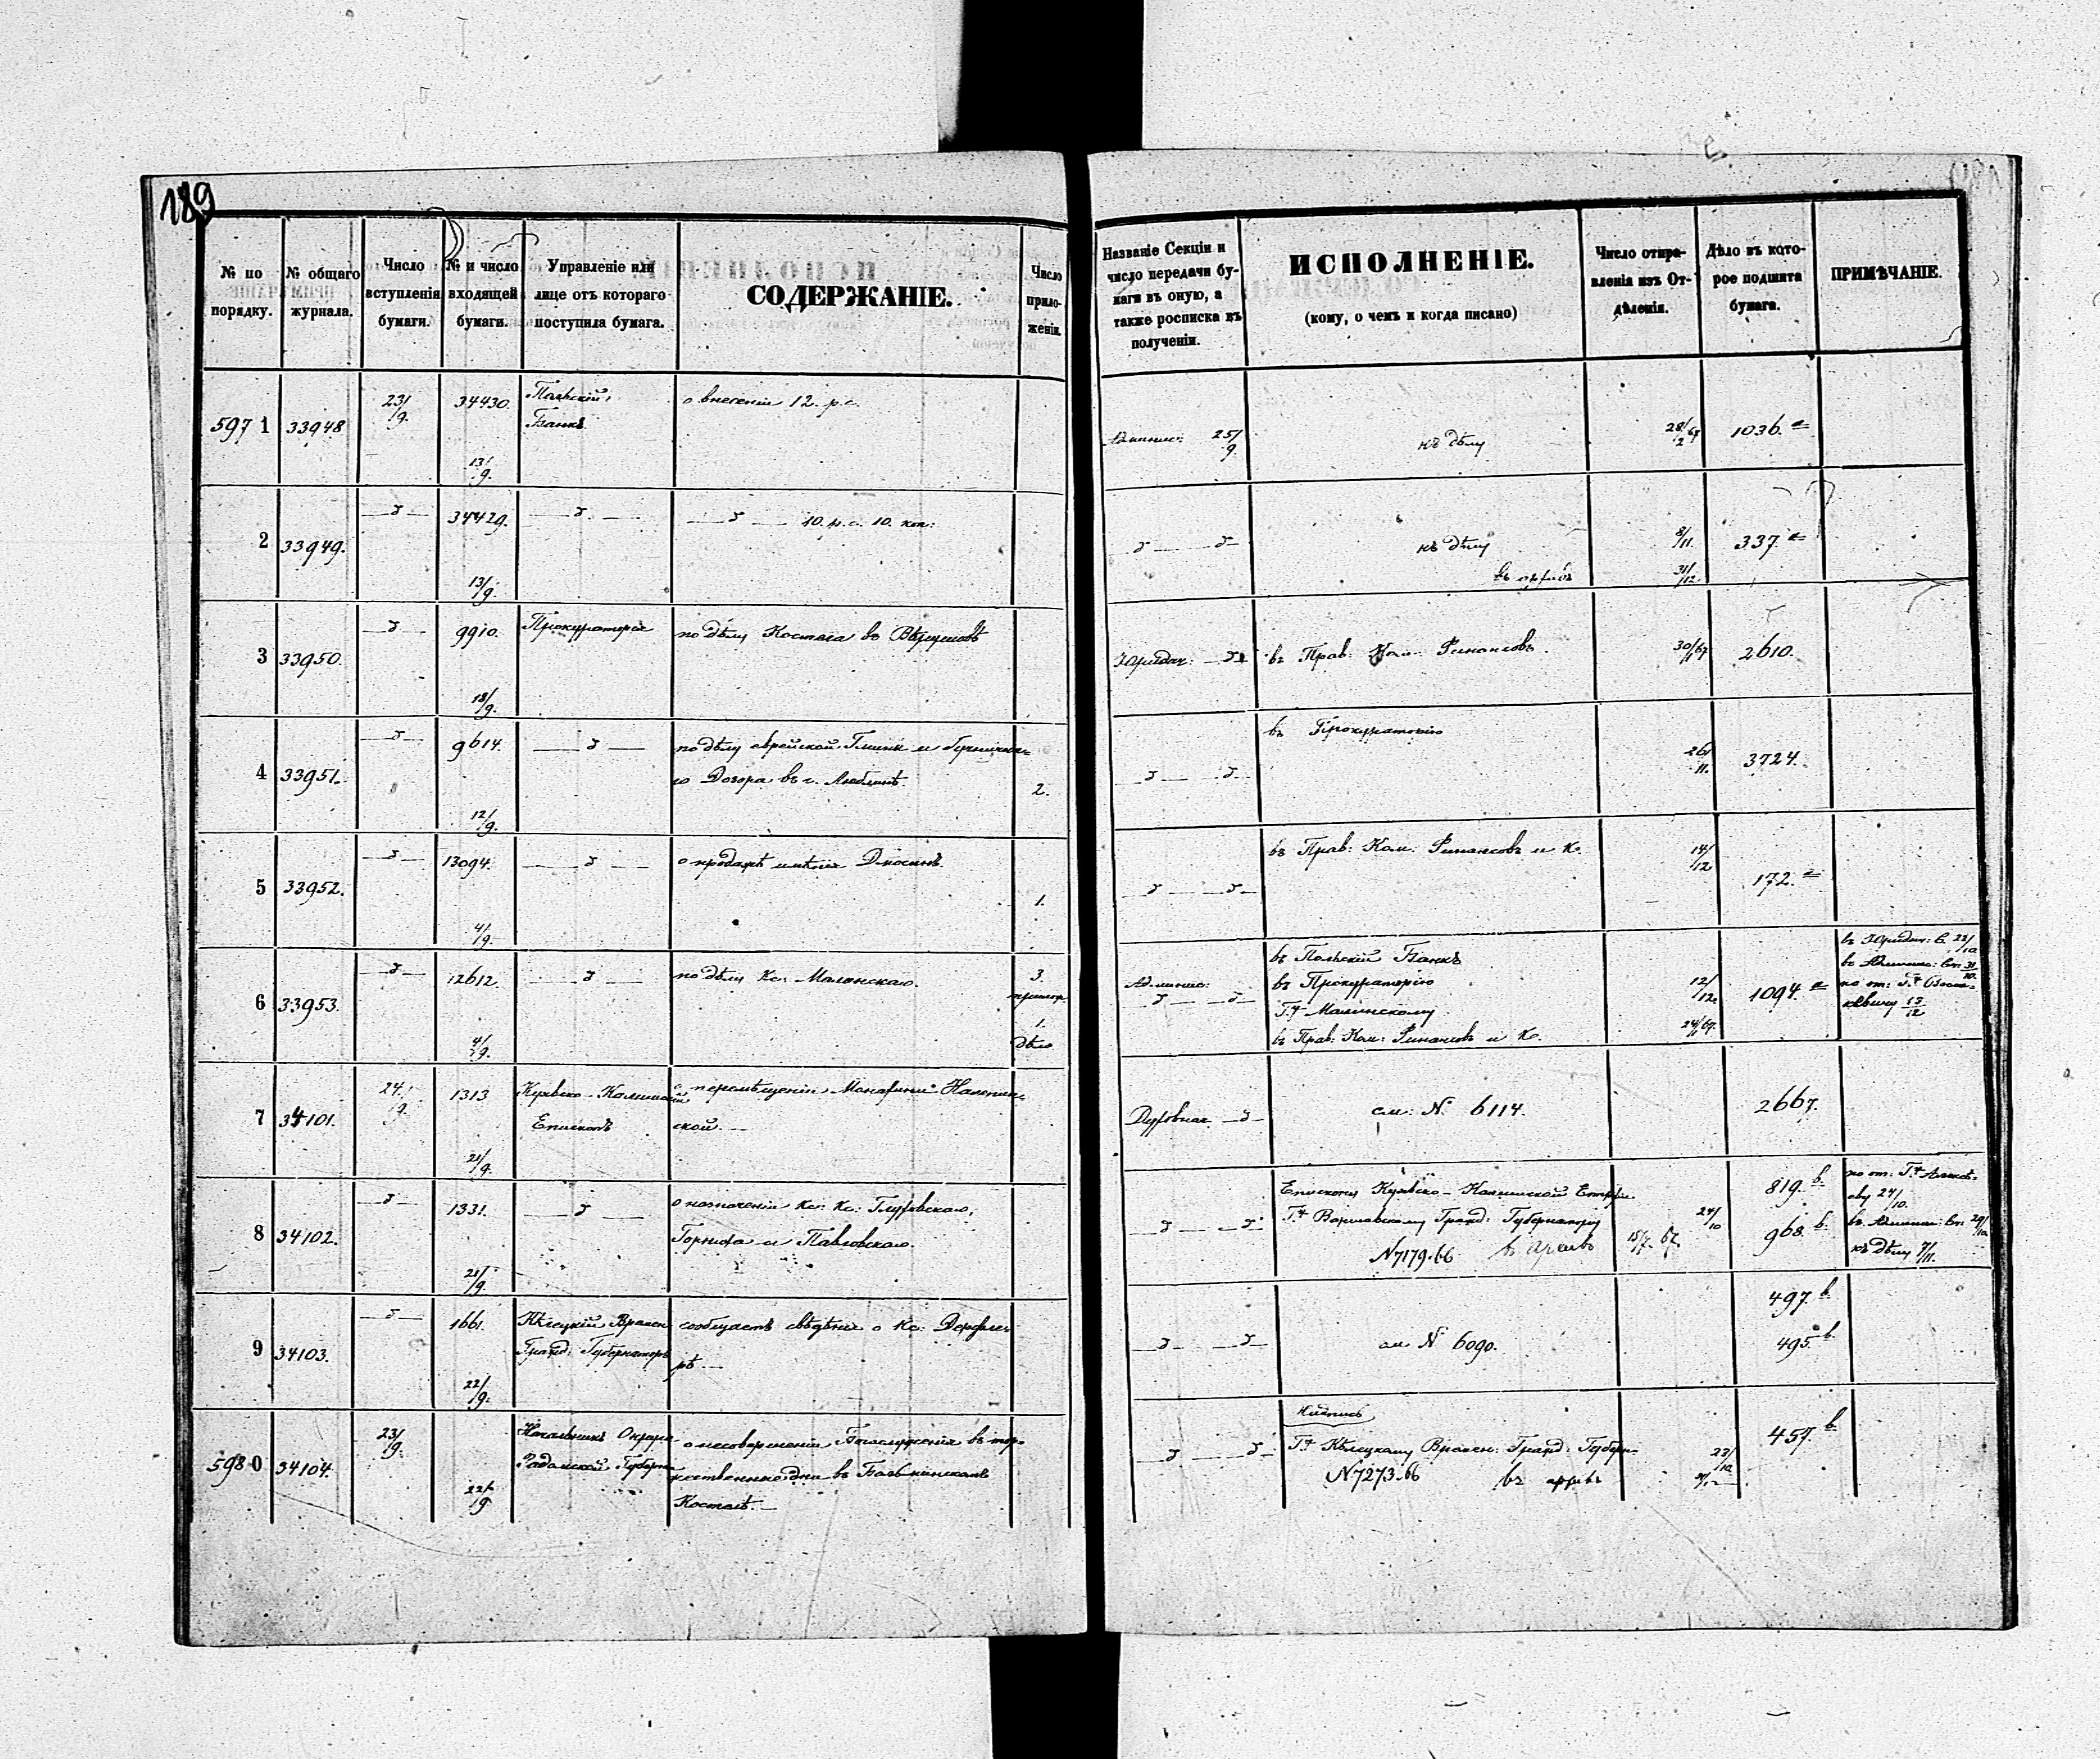 189
№ по порядку.
№ общаго журнала.
Число вступленія бумаги.
№ и число входящей бумаги.
Управленіе или лице отъ котораго поступила бумага.
СОДЕРЖАНІЕ.
Число приложеній.
Названіе Секціи и число передачи бумаги въ оную, а также росписка въ полученіи.
ИСПОЛНЕНІЕ.
(кому, о чемъ и когда писано)
Число отправленія изъ Отдѣленія.
Дѣло въ которое подшита бумага.
ПРИМѢЧАНІЕ.
5971 33948 23/9. 34430. 13/9. Польскій Банкъ о внесеніи 12. р.с. 25/9. къ дѣлу 28/2 67 1036. a
2 33949. д 34429. 13/9. д д 10. р.с. 10. коп: д д къ дѣлу 8/11. 337. a
въ архивъ 31/12.
3 33950. д 9910. 18/9. Прокураторія по дѣлу Костела въ Юридич: д въ Прав: Ком: Финансовъ. 30/1 67 2610.
4 33951. д 9614. 12/9. д по дѣлу еврейской Гмины и
го Дозора въ г. Люблинѣ. 2. д д въ Прокураторію 26/11. 3724.
5 33952. д 13094. 4/9. д о продажѣ имѣнія 1. д д въ Прав: Ком: Финансовъ и К. 14/12 172. a
6 33953. д 12612. 4/9. д по дѣлу Кс: Малинскаго. 3. 1. дѣло Админис: д д
въ Польскій Банкъ
въ Прокураторію
Г. Малинскому
въ Прав: Ком: Финансовъ и К. 12/12. 24/1 67. 1094. a
въ Юридич: С. 22/10
въ Админис: От: 31/10.
по от: Г.
13/12
7 34101. 24/9. 1313 21/9. Куявско-Калишскій
Епископъ о перемѣщеніи Монахини
ской. Духовная д см: N. 6114. 2667.
8 34102. д 1331. 21/9. д о назначеніи Кс: Кс: Глуховскаго,
и Павловскаго. д д
Епископу Куявско-Калишской Епархіи
Г. Варшавскому Гражд: Губернатору 24/10
N 7179.66 въ Архивъ 15/7. 67.
819. b.
968. b.
по от: Г.
24/10.
въ Админис: От: 29/10
къ дѣлу 7/11.
9 34103. д 1661. 22/9. Кѣлецкій Времен:
Гражд: Губернаторъ сообщаетъ свѣдѣнія о Кс:
рѣ. д д см N 6090. 497. b.
495. b.
5980 34104. 23/9. 22/9 Начальникъ Округа
Радомской Губерніи о несовершеніи Богослуженія въ тор-
жественные дни въ
Костелѣ. д д
Г. Кѣлецкому Времен: Гражд: Губерн: 23/10
N 7273.66 въ архивъ
457. b.